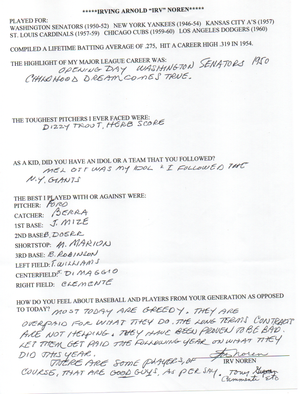 *****IRVING ARNOLD "IRV" NOREN*****
PLAYED FOR:
WASHINGTON SENATORS (1950-52) NEW YORK YANKEES (1946-54) KANSAS CITY A'S (1957)
ST. LOUIS CARDINALS (1957-59) CHICAGO CUBS (1959-60) LOS ANGELES DODGERS (1960)
COMPILED A LIFETIME BATTING AVERAGE OF .275, HIT A CAREER HIGH .319 IN 1954.
THE HIGHLIGHT OF MY MAJOR LEAGUE CAREER WAS:
OPENING DAY WASHINGTON SENATORS 1950
CHILDHOOD DREAM COMES TRUE.
THE TOUGHEST PITCHERS I EVER FACED WERE:
DIZZY TROUT, HERB SCORE
AS A KID, DID YOU HAVE AN IDOL OR A TEAM THAT YOU FOLLOWED?
MEL OTT WAS MY IDOL & I FOLLOWED THE
N.Y. GIANTS
THE BEST I PLAYED WITH OR AGAINST WERE:
PITCHER: FORD
CATCHER: BERRA
1ST BASE: J. MIZE
2ND BASE: B. DOERR
SHORTSTOP: M. MARION
3RD BASE: B. ROBINSON
LEFT FIELD: T. WILLIAMS
CENTERFIELD: DI MAGGIO
RIGHT FIELD: CLEMENTE
HOW DO YOU FEEL ABOUT BASEBALL AND PLAYERS FROM YOUR GENERATION AS OPPOSED
TO TODAY? MOST TODAY ARE GREEDY. THEY ARE
OVERPAID FOR WHAT THEY DO. THE LONG TERM CONTRACTS
ARE NOT HELPING. THEY HAVE BEEN PROVEN TO BE BAD.
LET THEM GET PAID THE FOLLOWING YEAR ON WHAT THEY
DID THIS YEAR.
Irv Noren
THERE ARE SOME PLAYERS, OF
IRV NOREN
COURSE, THAT ARE GOOD GUYS, AS PER SAY, TONY